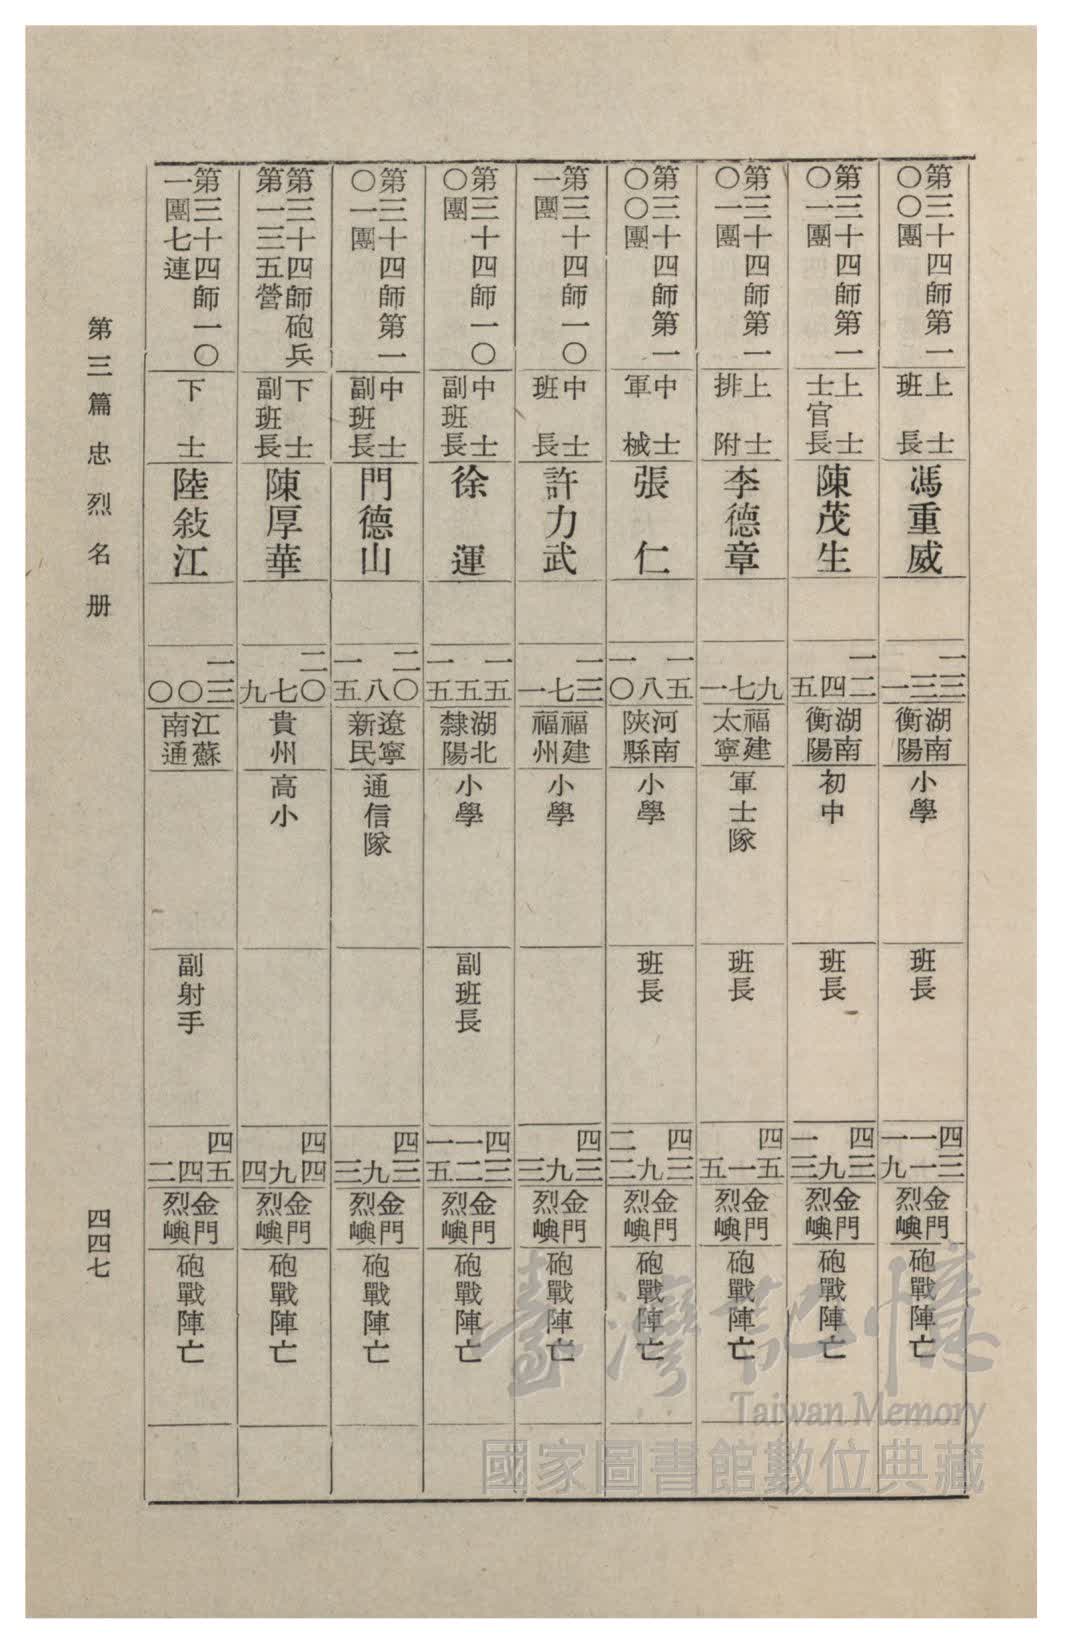 第三十四師第一
〇〇團
上士
班長
馮重威
一三
三
一
湖南
衡陽
小學
班長
四三
一一
一九
金門
烈嶼
砲戰陣亡
第三十四師第一
〇一團
上士
士官長
陳茂生
一二
四
五
湖南
衡陽
初中
班長
四三
九
一三
金門
烈嶼
砲戰陣亡
第三十四師第一
〇一團
上士
排附
李德章
九
七
一
福建
太寧
軍士隊
班長
四五
一
五
金門
烈嶼
砲戰陣亡
第三十四師第一
〇〇團
中士
軍械
張仁
一五
八
一〇
河南
陝縣
小學
班長
四三
九
二二
金門
烈嶼
砲戰陣亡
第三十四師一〇
一團
中士
班長
許力武
一三
七
一
福建
福州
小學
四三
九
三
金門
烈嶼
砲戰陣亡
第三十四師一〇
〇團
中士
副班長
徐運
一五
五
一五
湖北
隸陽
小學
副班長
四三
一二
一五
金門
烈嶼
砲戰陣亡
第三十四師第一
〇一團
中士
副班長
門德山
二〇
八
一五
遼寧
新民
通信隊
四三
九
三
金門
烈嶼
砲戰陣亡
第三十四師砲兵
第一三五營
下士
副班長
陳厚華
二〇
七
九
貴州
高小
四四
九
四
金門
烈嶼
砲戰陣亡
第三十四師一〇
一團七連
下士
陸敍江
一三
〇
〇
江蘇
南通
副射手
四五
四
二
金門
烈嶼
砲戰陣亡
第三篇 忠烈名册
四四七
臺灣記憶
Taiwan Memory
國家圖書館數位典藏